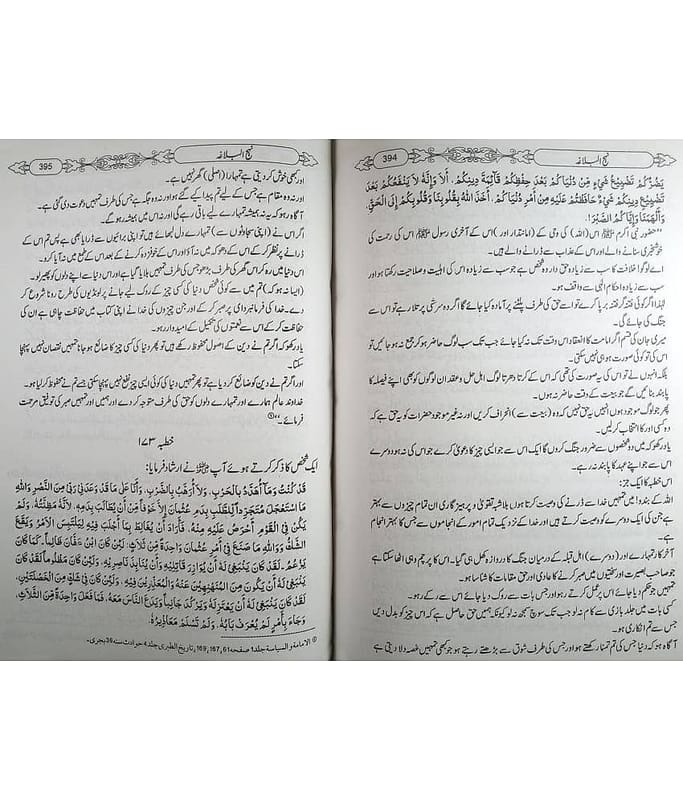 نہج البلاغہ
394
يَضُرُّكُمْ تَضْيِيعُ شَيْءٍ مِّنْ دُنْيَاكُمْ بَعْدَ حِفْظِكُمْ قَائِمَةَ دِينِكُمْ، أَلَا وَإِنَّهُ لَا يَنْفَعُكُمْ بَعْدَ
تَضْيِيعِ دِينِكُمْ شَيْءٌ حَافَظْتُمْ عَلَيْهِ مِنْ أَمْرِ دُنْيَاكُمْ، أَخَذَ اللهُ بِقُلُوبِنَا وَقُلُوبِكُمْ إِلَى الْحَقِّ،
وَأَلْهَمَنَا وَإِيَّاكُمُ الصَّبْرَ!
’’حضور نبی اکرم ﷺ اس (اللہ) کی وحی کے (امانتدار اور) اس کے آخری رسول ﷺ اس کی رحمت کی
خوشخبری سنانے والے اور اس کے عذاب سے ڈرانے والے ہیں۔
اے لوگو! خلافت کا سب سے زیادہ حق دار وہ شخص ہے جو سب سے زیادہ اس کی اہلیت و صلاحیت رکھتا ہو اور
سب سے زیادہ احکام الٰہی سے واقف ہو۔
لہٰذا اگر کوئی فتنہ گر فتنہ برپا کرے تو اسے حق کی طرف پلٹنے پر آمادہ کیا جائے گا اگر وہ سرکشی پر تلا رہے تو اس سے
جنگ کی جائے گی۔
میری جان کی قسم اگر امامت کا انعقاد اس وقت تک نہ کیا جائے جب تک سب لوگ حاضر ہو کر جمع نہ ہو جائیں تو
اس کی تو کوئی صورت ہو ہی نہیں سکتی۔
بلکہ انہوں نے تو اس کی یہ صورت کی تھی کہ اس کے کرتا دھرتا لوگ اہل حل و عقد ان لوگوں کو بھی اپنے فیصلہ کا
پابند بنائیں گے جو بیعت کے وقت حاضر نہ ہوں۔
پھر جو لوگ موجود ہوں انہیں یہ حق نہیں کہ وہ (بیعت سے) انحراف کریں اور نہ غیر موجود حضرات کو یہ حق ہے کہ
وہ کسی اور کا انتخاب کر لیں۔
یاد رکھو کہ میں دو شخصوں سے ضرور جنگ کروں گا ایک اس سے جو ایسی چیز کا دعویٰ کرے جو اس کی نہ ہو دوسرے
اس سے جو اپنے عہد کا پابند نہ رہے۔
اس خطبہ کا ایک جز:
اللہ کے بندو! میں تمہیں خدا سے ڈرنے کی وصیت کرتا ہوں بلاشبہ تقویٰ و پرہیزگاری ان تمام چیزوں سے بہتر
ہے جن کی ایک دوسرے کو وصیت کرتے ہیں اور خدا کے نزدیک تمام امور کے انجاموں سے جس کا بہتر انجام
ہے۔
آخر کار تمہارے اور (دوسرے) اہل قبلہ کے درمیان جنگ کا دروازہ کھل ہی گیا۔ اس کا پرچم وہی اٹھا سکتا ہے
جو صاحب بصیرت اور سختیوں میں صبر کرنے کا عادی اور حق مقامات کا شناسا ہو۔
تمہیں جو حکم دیا جائے اس پر عمل کرتے رہو اور جس بات سے روک دیا جائے اس سے رکے رہو۔
کسی بات میں جلد بازی سے کام نہ لو جب تک سوچ سمجھ نہ لو کیونکہ ہمیں حق حاصل ہے کہ اس چیز کو بدل دیں
جس سے تم انکاری ہو۔
آگاہ ہو کہ دنیا جس کی تم تمنا رکھتے ہو اور جس کی طرف شوق سے بڑھتے رہتے ہو جو کبھی تمہیں غصہ دلا دیتی ہے
نہج البلاغہ
395
اور کبھی خوش کر دیتی ہے تمہارا (اصلی) گھر نہیں ہے۔
اور نہ وہ مقام ہے جس کے لیے تم پیدا کیے گئے ہو اور نہ وہ جگہ ہے جس کی طرف تمہیں دعوت دی گئی ہے۔
آگاہ رہو کہ یہ نہ ہمیشہ تمہارے لیے باقی رہے گی اور نہ اس میں ہمیشہ رہو گے۔
اگر اس نے (اپنی سجاوٹوں سے) تمہارے دل لبھائے ہیں تو اپنی برائیوں سے ڈرایا بھی ہے پس تم اس کے
ڈرانے پر نظر کر کے اس کے دھوکہ میں نہ آؤ اور اس کے خوفزدہ کرنے کے بعد اس کے طمع میں نہ آیا کرو۔
اس دنیا میں رہ کر اس گھر کی طرف بڑھو جس کی طرف تمہیں بلایا گیا ہے اور اس دنیا سے اپنے دلوں کو پھیر لو۔
(ایسا نہ ہو کہ) تم میں سے کوئی شخص دنیا کی کسی چیز کے روک لیے جانے پر لونڈیوں کی طرح رونا شروع کر
دے۔ خدا کی فرمانبرداری پر صبر کر کے اور جن چیزوں کی خدا نے اپنی کتاب میں حفاظت چاہی ہے ان کی
حفاظت کر کے اس سے نعمتوں کی تکمیل کے امیدوار رہو۔
یاد رکھو کہ اگر تم نے دین کے اصول محفوظ رکھے ہیں تو پھر دنیا کی کسی چیز کا ضائع ہو جانا تمہیں نقصان نہیں پہنچا
سکتا۔
اور اگر تم نے دین کو ضائع کر دیا ہے تو پھر تمہیں دنیا کی کوئی ایسی چیز نفع نہیں پہنچا سکتی جسے تم نے محفوظ کر لیا ہو۔
خداوند عالم ہمارے اور تمہارے دلوں کو حق کی طرف متوجہ کر دے اور ہمیں اور تمہیں صبر کی توفیق مرحمت
فرمائے۔‘‘①
خطبہ ۱۷۳
ایک شخص کا ذکر کرتے ہوئے آپ ؑ نے ارشاد فرمایا:
قَدْ كُنْتُ وَمَا أُهَدَّدُ بِالْحَرْبِ، وَلَا أُرَهَّبُ بِالضَّرْبِ، وَأَنَا عَلَى مَا قَدْ وَعَدَنِي رَبِّي مِنَ النَّصْرِ وَاللهِ
مَا اسْتَعْجَلَ مُتَجَرِّداً لِلطَّلَبِ بِدَمِ عُثْمَانَ إِلَّا خَوْفاً مِنْ أَنْ يُطَالَبَ بِدَمِهِ، لِأَنَّهُ مَظِنَّتُهُ، وَلَمْ
يَكُنْ فِي الْقَوْمِ أَحْرَصُ عَلَيْهِ مِنْهُ، فَأَرَادَ أَنْ يُغَالِطَ بِمَا أَجْلَبَ فِيهِ لِيَلْتَبِسَ الْأَمْرُ وَيَقَعَ
الشَّكُّ وَوَاللهِ مَا صَنَعَ فِي أَمْرِ عُثْمَانَ وَاحِدَةً مِنْ ثَلَاثٍ: لَئِنْ كَانَ ابْنُ عَفَّانَ ظَالِماً۔ كَمَا كَانَ
يَزْعُمُ۔ لَقَدْ كَانَ يَنْبَغِي لَهُ أَنْ يُوَازِرَ قَاتِلِيهِ وَأَنْ يُنَابِذَ نَاصِرِيهِ، وَلَئِنْ كَانَ مَظْلُوماً لَقَدْ كَانَ
يَنْبَغِي لَهُ أَنْ يَكُونَ مِنَ الْمُنَهْنِهِينَ عَنْهُ وَالْمُعَذِّرِينَ فِيهِ، وَلَئِنْ كَانَ فِي شَكٍّ مِنَ الْخَصْلَتَيْنِ،
لَقَدْ كَانَ يَنْبَغِي لَهُ أَنْ يَعْتَزِلَهُ وَيَرْكُدَ جَانِباً وَيَدَعَ النَّاسَ مَعَهُ، فَمَا فَعَلَ وَاحِدَةً مِنَ الثَّلَاثِ،
وَجَاءَ بِأَمْرٍ لَمْ يُعْرَفْ بَابُهُ، وَلَمْ تَسْلَمْ مَعَاذِيرُهُ۔
① الامامۃ و السیاسۃ جلد 1 صفحہ 61، 167، 169، تاریخ الطبری جلد 4 حوادث سن 36 ہجری۔